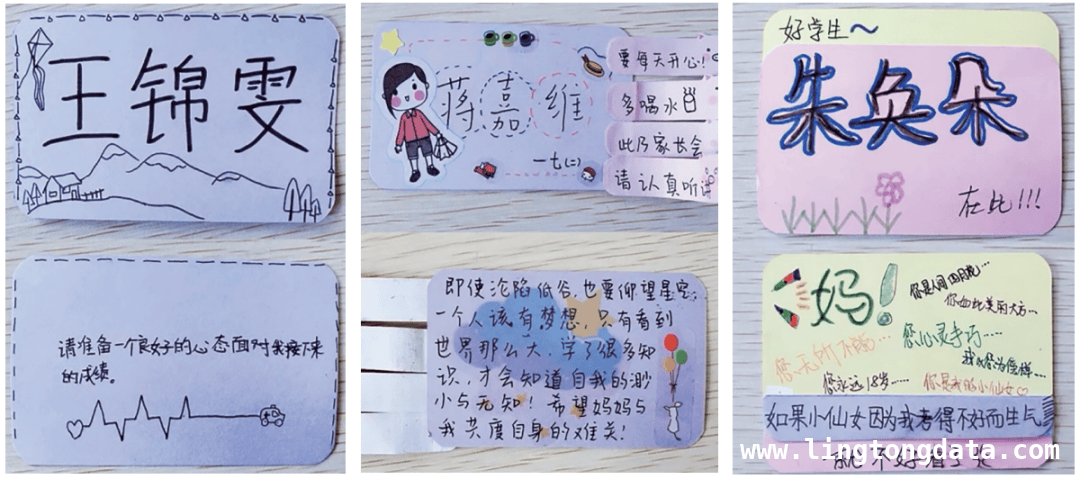 王锦雯
请准备一个良好的心态面对我接下来
的成绩。
蒋嘉维
一七(二)
要每天开心!
多喝水
此乃家长会
请认真听讲
即使沦陷低谷,也要仰望星空;
一个人该有梦想,只有看到
世界那么大,学了很多知
识,才会知道自我的渺
小与无知!希望妈妈与
我共度自身的难关!
好学生~
朱奂朵
在此!!!
妈!
您如此美丽大方…
您心灵手巧…
您无所不能…
我以您为榜样…
您永远18岁…
你是我的小仙女
如果小仙女因为我考得不好而生气
就不好看了哦
www.lingtongdata.com